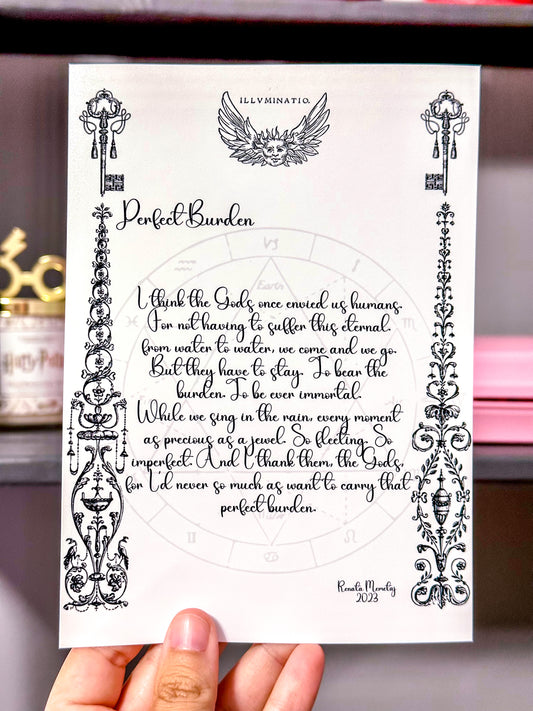 ILLVMINATIO.
Perfect Burden
Earth
I think the Gods once envied us humans.
For not having to suffer this eternal.
from water to water, we come and we go.
But they have to stay. To bear the
burden. To be ever immortal.
While we sing in the rain, every moment
as precious as a jewel. So fleeting. So
imperfect. And I thank them, the Gods,
for I'd never so much as want to carry that
perfect burden.
Renata
2023
Harry Potter